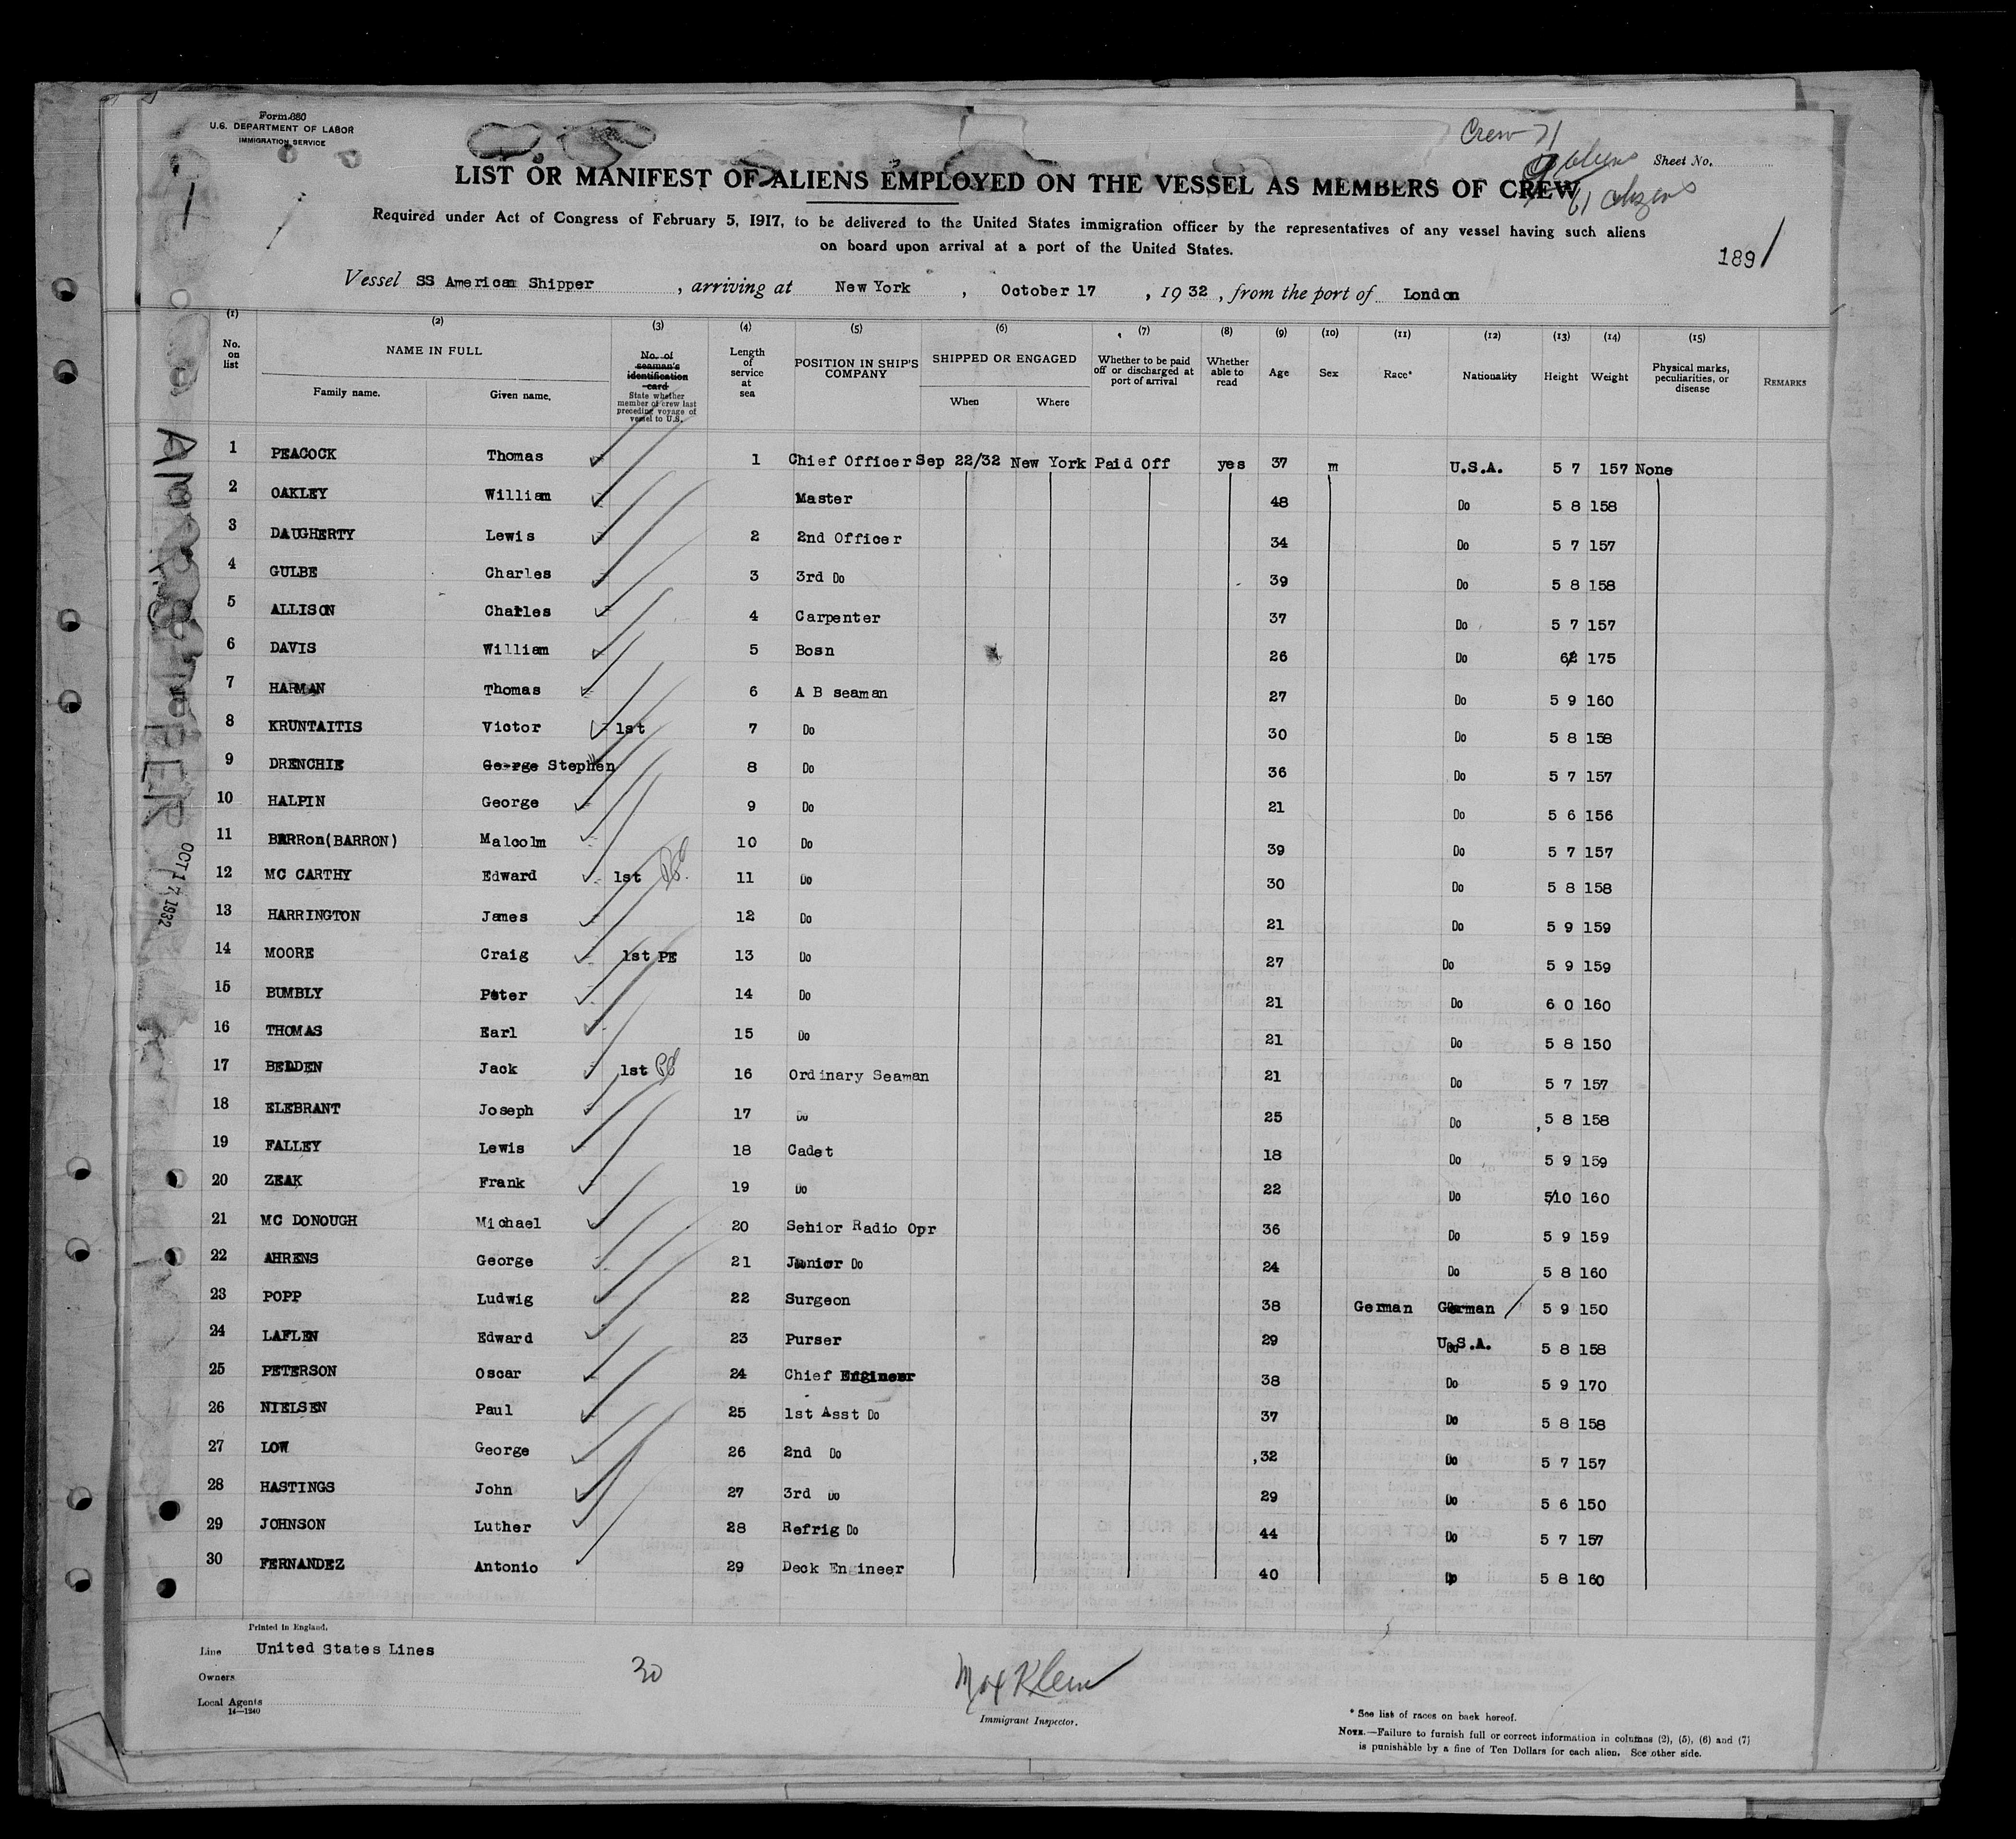 Form 680
U.S. DEPARTMENT OF LABOR
IMMIGRATION SERVICE
Crew 71
Sheet No.
61 citizens
LIST OR MANIFEST OF ALIENS EMPLOYED ON THE VESSEL AS MEMBERS OF CREW
Required under Act of Congress of February 5, 1917, to be delivered to the United States immigration officer by the representatives of any vessel having such aliens
on board upon arrival at a port of the United States.
189
Vessel SS American Shipper, arriving at New York, October 17, 1932, from the port of London
(1) (2) (3) (4) (5) (6) (7) (8) (9) (10) (11) (12) (13) (14) (15)
No. on list NAME IN FULL Family name. Given name. No. of seaman's identification card State whether member of crew last preceding voyage of vessel to U.S. Length of service at sea POSITION IN SHIP'S COMPANY SHIPPED OR ENGAGED When Where Whether to be paid off or discharged at port of arrival Whether able to read Age Sex Race* Nationality Height Weight Physical marks, peculiarities, or disease REMARKS
1 PEACOCK Thomas 1 Chief Officer Sep 22/32 New York Paid Off yes 37 m U.S.A. 5 7 157 None
2 OAKLEY William Master 48 Do 5 8 158
3 DAUGHERTY Lewis 2 2nd Officer 34 Do 5 7 157
4 GULBE Charles 3 3rd Do 39 Do 5 8 158
5 ALLISON Charles 4 Carpenter 37 Do 5 7 157
6 DAVIS William 5 Bosn 26 Do 175
7 HARMAN Thomas 6 A B seaman 27 Do 5 9 160
8 KRUNTAITIS Victor 1st 7 Do 30 Do 5 8 158
9 DRENCHIE George Stephen 8 Do 36 Do 5 7 157
10 HALPIN George 9 Do 21 Do 5 6 156
11 BARRon(BARRON) Malcolm 10 Do 39 Do 5 7 157
12 MC CARTHY Edward 1st 11 Do 30 Do 5 8 158
13 HARRINGTON James 12 Do 21 Do 5 9 159
14 MOORE Craig 1st PE 13 Do 27 Do 5 9 159
15 BUMBLY Peter 14 Do 21 Do 6 0 160
16 THOMAS Earl 15 Do 21 Do 5 8 150
17 BEDDEN Jack 1st 16 Ordinary Seaman 21 Do 5 7 157
18 ELEBRANT Joseph 17 Do 25 Do 5 8 158
19 FALLEY Lewis 18 Cadet 18 Do 5 9 159
20 ZEAK Frank 19 Do 22 Do 5/10 160
21 MC DONOUGH Michael 20 Sehior Radio Opr 36 Do 5 9 159
22 AHRENS George 21 Junior Do 24 Do 5 8 160
23 POPP Ludwig 22 Surgeon 38 German German 5 9 150
24 LAFLEN Edward 23 Purser 29 U.S.A. 5 8 158
25 PETERSON Oscar 24 Chief Engineer 38 Do 5 9 170
26 NIELSEN Paul 25 1st Asst Do 37 Do 5 8 158
27 LOW George 26 2nd Do 32 Do 5 7 157
28 HASTINGS John 27 3rd Do 29 Do 5 6 150
29 JOHNSON Luther 28 Refrig Do 44 Do 5 7 157
30 FERNANDEZ Antonio 29 Deck Engineer 40 Do 5 8 160
OCT 17 1932
Printed in England.
Line United States Lines
Owners
Local Agents
14—1240
30
Max Klein
Immigrant Inspector.
* See list of races on back hereof.
NOTE.—Failure to furnish full or correct information in columns (2), (5), (6) and (7)
is punishable by a fine of Ten Dollars for each alien. See other side.